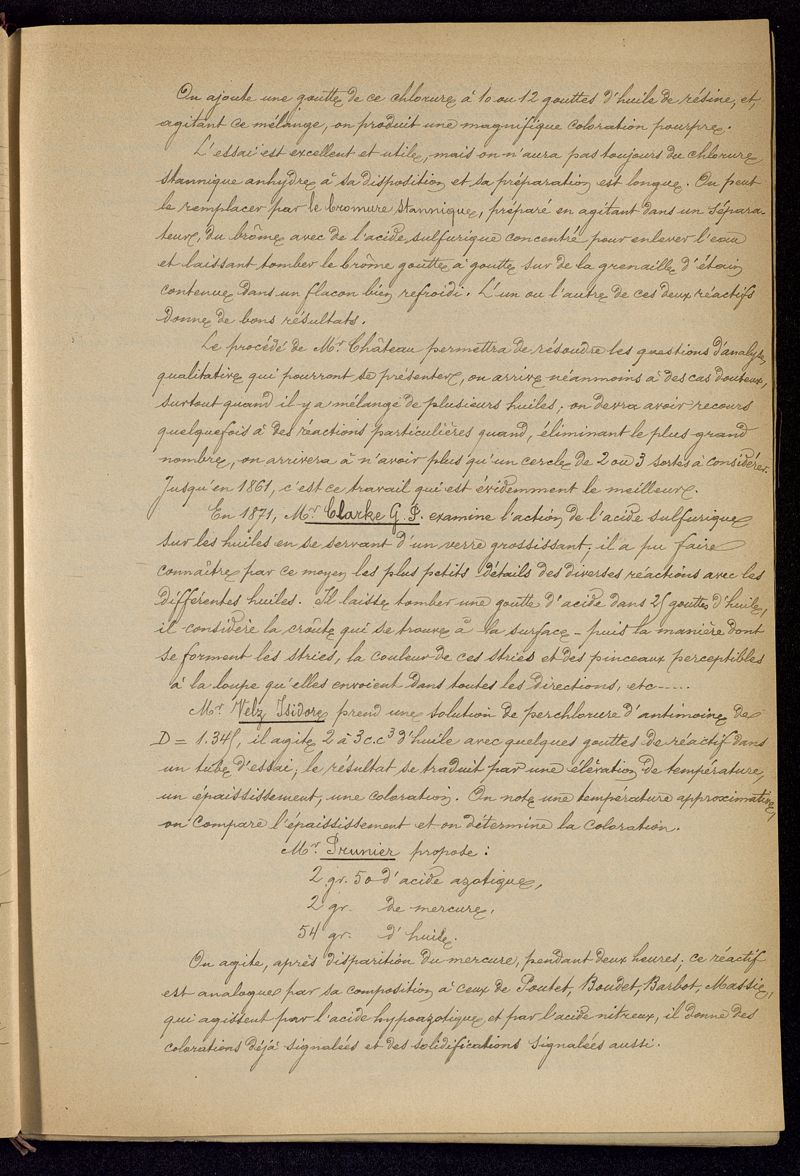 On ajoute une goutte de ce chlorure à 10 ou 12 gouttes d'huile de résine, et,
agitant ce mélange, on produit une magnifique coloration pourpre.
L'essai est excellent et utile, mais on n'aura pas toujours du chlorure
stannique anhydre à sa disposition et sa préparation est longue. On peut
le remplacer par le bromure stannique, préparé en agitant dans un sépara-
teur, du brôme avec de l'acide sulfurique concentré pour enlever l'eau
et laissant tomber le brôme goutte à goutte sur de la grenaille d'étain
contenue dans un flacon bien refroidi. L'un ou l'autre de ces deux réactifs
donne de bons résultats.
Le procédé de Mr Château permettra de résoudre les questions d'analyse
qualitative qui pourront se présenter, on arrive néanmoins à des cas douteux,
surtout quand il y a mélange de plusieurs huiles; on devra avoir recours
quelquefois à des réactions particulières quand, éliminant le plus grand
nombre, on arrivera à n'avoir plus qu'un cercle de 2 ou 3 sortes à considérer.
Jusqu'en 1861, c'est ce travail qui est évidemment le meilleur.
En 1871, Mr Clarke G. P. examine l'action de l'acide sulfurique
sur les huiles en se servant d'un verre grossissant, il a pu faire
connaître par ce moyen les plus petits détails des diverses réactions avec les
différentes huiles. Il laisse tomber une goutte d'acide dans 25 gouttes d'huile,
il considère la croûte qui se trouve à la surface - puis la manière dont
se forment les stries, la couleur de ces stries et des pinceaux perceptibles
à la loupe qu'elles envoient dans toutes les directions, etc.....
Mr Velz Isidore prend une solution de perchlorure d'antimoine de
D = 1.345, il agite 2 à 3 c.c³ d'huile avec quelques gouttes de réactif dans
un tube d'essai; le résultat se traduit par une élévation de température,
un épaississement, une coloration. On note une température approximative,
on compare l'épaississement et on détermine la coloration.
Mr Prunier propose:
2 gr. 50 d'acide azotique,
2 gr. de mercure,
54 gr. d'huile.
On agite, après disparition du mercure, pendant deux heures; ce réactif
est analogue par sa composition à ceux de Poutet, Boudet, Barbot, Massie,
qui agissent par l'acide hypoazotique et par l'acide nitreux, il donne des
colorations déjà signalées et des solidifications signalées aussi.